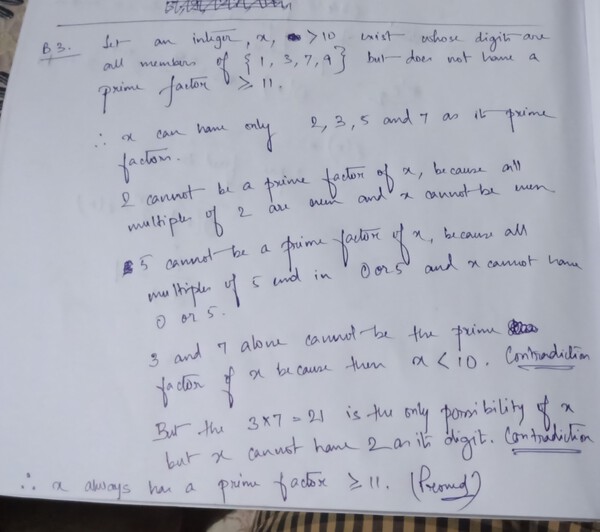 B3. Let an integer, x, >10 exist whose digits are
all members of {1, 3, 7, 9} but does not have a
prime factor ≥ 11.
∴ x can have only 2, 3, 5 and 7 as its prime
factors.
2 cannot be a prime factor of x, because all
multiples of 2 are even and x cannot be even
5 cannot be a prime factor of x, because all
multiples of 5 end in 0 or 5 and x cannot have
0 or 5.
3 and 7 alone cannot be the prime
factor of x because then x < 10. Contradiction
But the 3*7 = 21 is the only possibility of x
but x cannot have 2 as its digit. Contradiction
∴ x always has a prime factor ≥ 11. (Proved)